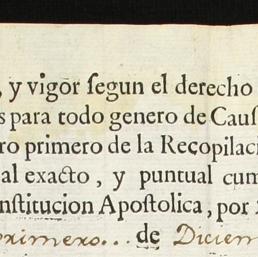 , y vigor ſegun el derecho
s para todo genero de Cauſ
ro primero de la Recopilaci
al exacto, y puntual cum
nſtitucion Apoſtolica, por
primero... de Diciem